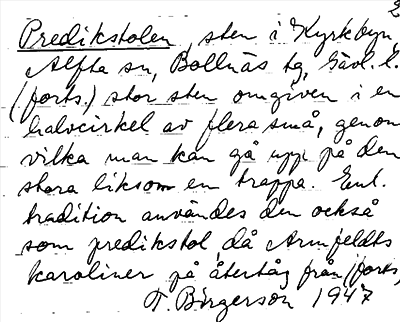 2
Predikstolen, sten i Kyrkbyn
Alfta sn, Bollnäs tg, Gävl. l.
(forts.) stor sten omgiven i en
halvcirkel av flera små, genom
vilka man kan gå upp på den
stora liksom en trappa. Enl.
tradition användes den också
som predikstol, då Armfeldts
karoliner på återtåg från (forts,
T. Birgerson 1947